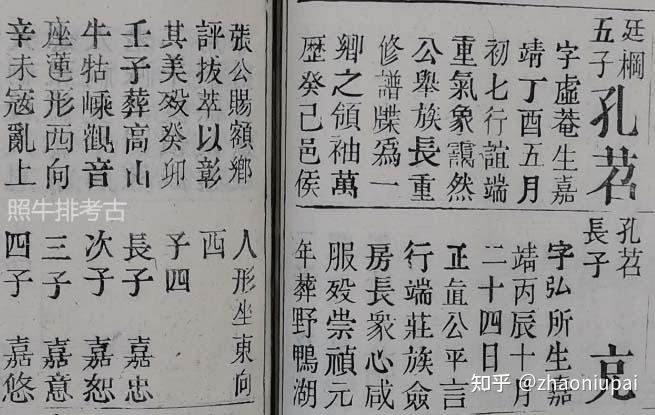 廷棡
五子
孔苕
字虛菴生嘉
靖丁酉五月
初七行誼端
重氣象靄然
公舉族長重
修譜牒爲一
鄉之領袖萬
歷癸己邑侯
張公賜額鄉
評拔萃以彰
其美歿癸卯
壬子葬高山
牛牯嵊觀音
座蓮形西向
辛未寇亂上
孔苕
長子
克
字弘所生嘉
靖丙辰十月
二十四日
正直公平言
行端莊族僉
房長衆心咸
服歿崇禎元
年葬野鴨湖
人形坐東向
西
子四
長子 嘉忠
次子 嘉恕
三子 嘉意
四子 嘉悠
照牛排考古
知乎 @zhaoniupai